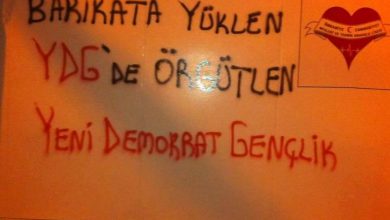 BARİKATA YÜKLEN
YDG'DE ÖRGÜTLEN
YENİ DEMOKRAT GENÇLİK